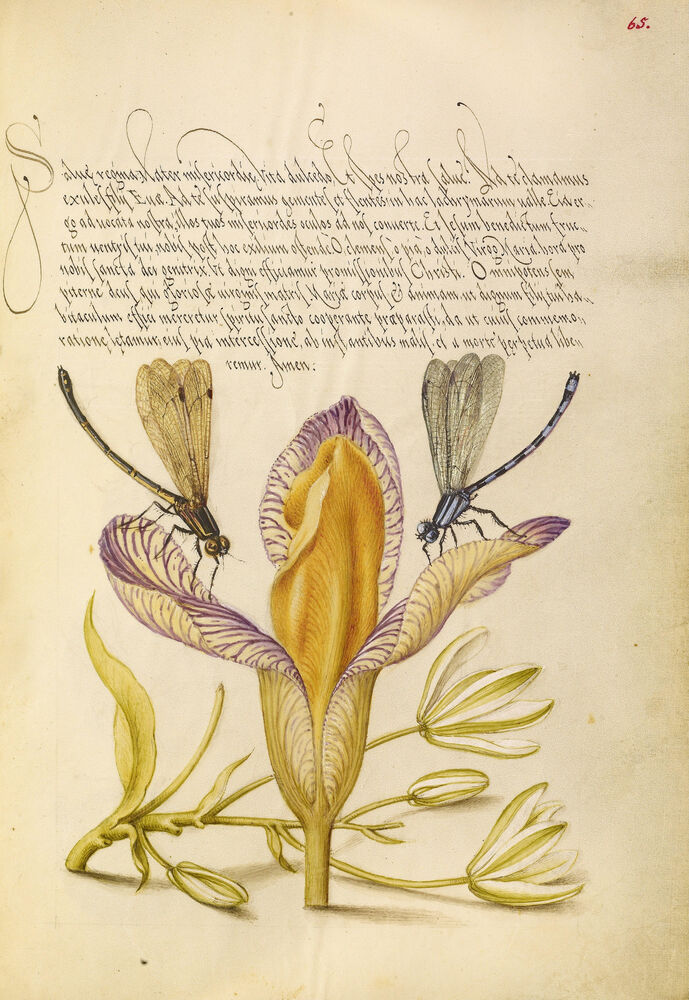 65.
Salue regina Mater misericordie, Vita dulcedo, Et spes nostra salue. Ad te clamamus
exules filij Euæ. Ad te suspiramus gementes et flentes in hac lachrymarum ualle. Eia er-
go aduocata nostra, illos tuos misericordes oculos ad nos conuerte. Et Iesum benedictum fruc-
tum uentris tui nobis post hoc exilium ostende. O clemens, o pia, o dulcis Virgo Maria. hora pro
nobis sancta dei genitrix Vt digni efficiamur promissionibus Christi. Omnipotens sem
piterne deus, qui gloriosæ uirginis matris Mariæ corpus & animam, ut dignum filij tui ha-
bitaculum effici mereretur spiritu sancto cooperante præparasti, da ut cuius commemo-
ratione lętamur, eius pia intercessione, ab instantibus malis, et a morte perpetua libe-
remur. Amen: